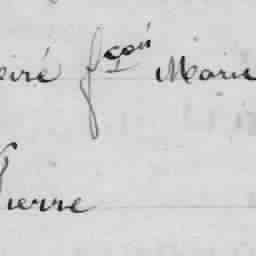 oiré fçois Marie
Pierre